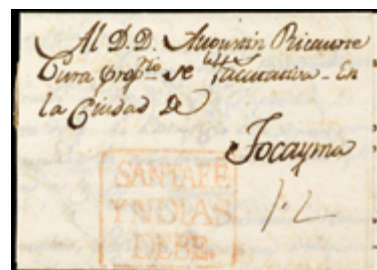 Al D.D. Augustin Ricaurte
Cura Propio de - En
la Ciudad de
Tocayma
SANTAFE
YNDIAS
DEBE.
1.2